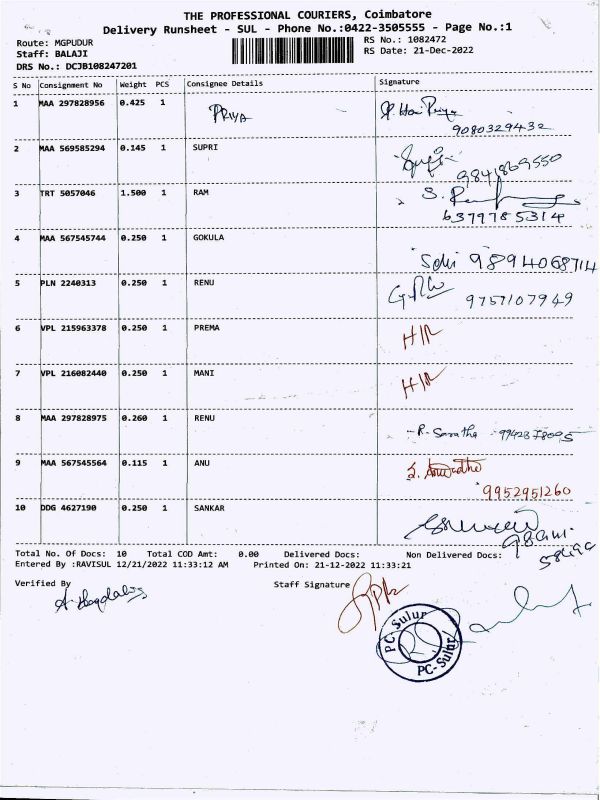 THE PROFESSIONAL COURIERS, Coimbatore
Delivery Runsheet - SUL - Phone No.:0422-3505555 - Page No.:1
Route: MGPUDUR
RS No.: 1082472
Staff: BALAJI
RS Date: 21-Dec-2022
DRS No.: DCJB108247201
S No Consignment No Weight PCS Consignee Details Signature
1 MAA 297828956 0.425 1 PRIYA Priya
9080329432
2 MAA 569585294 0.145 1 SUPRI
9841869550
3 TRT 5057046 1.500 1 RAM
6379785314
4 MAA 567545744 0.250 1 GOKULA
9894068714
5 PLN 2240313 0.250 1 RENU
9757107949
6 VPL 215963378 0.250 1 PREMA H/R
7 VPL 216082440 0.250 1 MANI H/R
8 MAA 297828975 0.260 1 RENU R. Saratha
9 MAA 567545564 0.115 1 ANU
9952951260
10 DDG 4627190 0.250 1 SANKAR
Total No. Of Docs: 10 Total COD Amt: 0.00 Delivered Docs: Non Delivered Docs:
Entered By :RAVISUL 12/21/2022 11:33:12 AM Printed On: 21-12-2022 11:33:21
Verified By Staff Signature
PC-Sulur
PC-Sulur